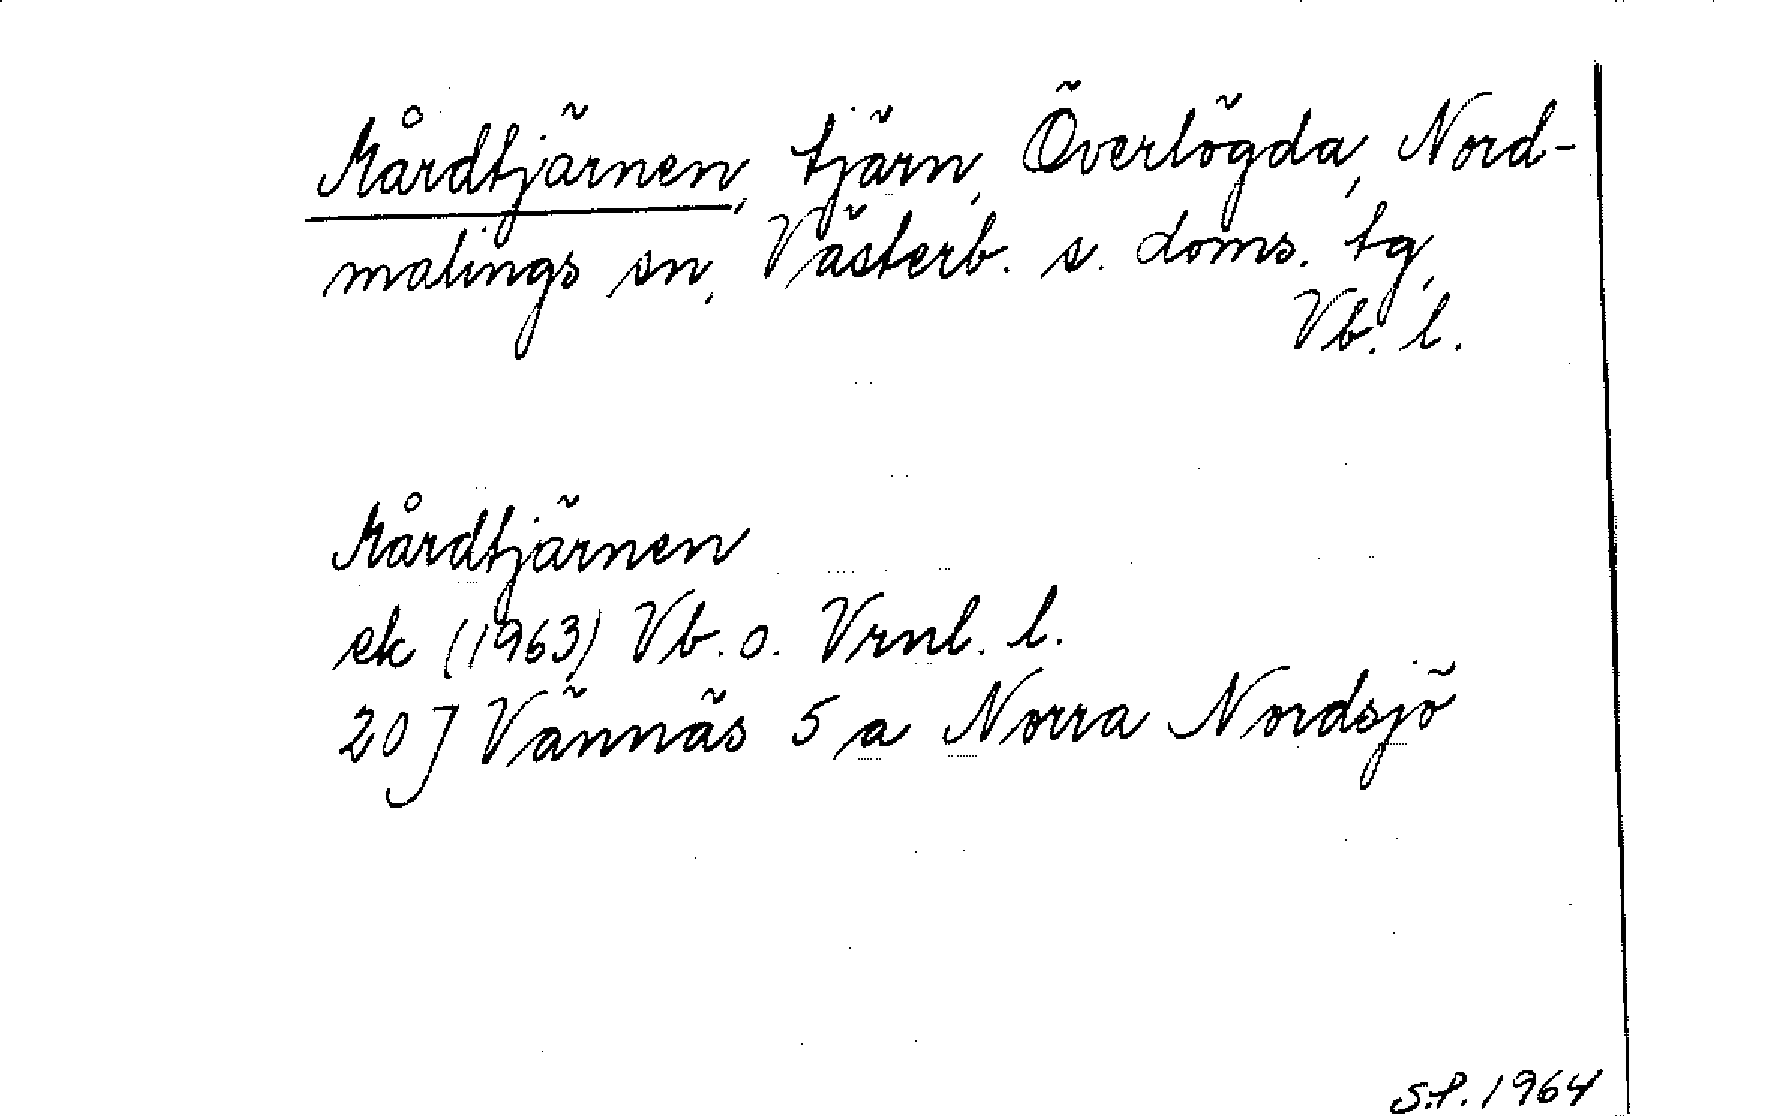 Mårdtjärnen, tjärn, Överlögda, Nord-
malings sn, Västerb. s. doms. tg,
Vb. l.
Mårdtjärnen
ek (1963) Vb. o. Vrnl. l.
20 J Vännäs 5 a Norra Nordsjö
S.P. 1964